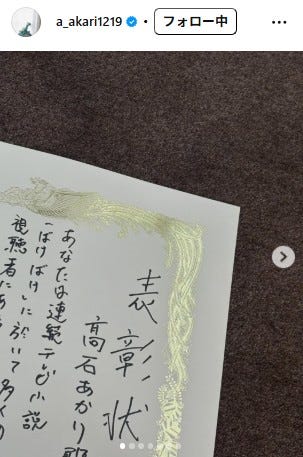 a_akari1219
フォロー中
表彰状
髙石あかり殿
あなたは連続テレビ小説
「ばけばけ」に於いて多くの
視聴者にあ